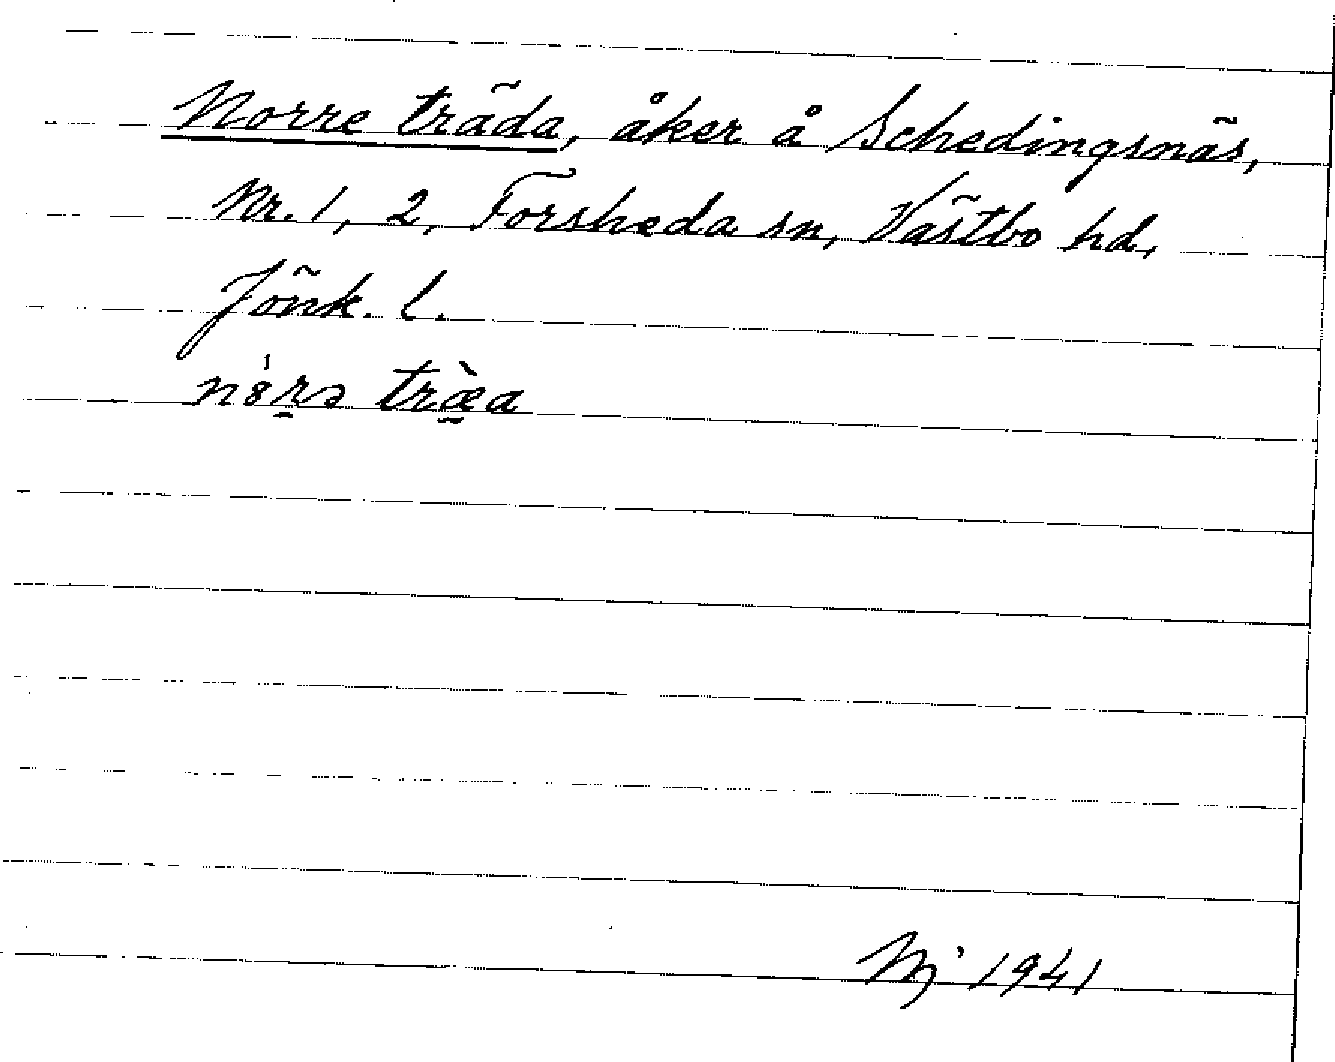 Norre träda, åker å Schedingsnäs,
Nr. 1, 2, Forsheda sn, Västbo hd,
Jönk. l.
træ̀a
1941